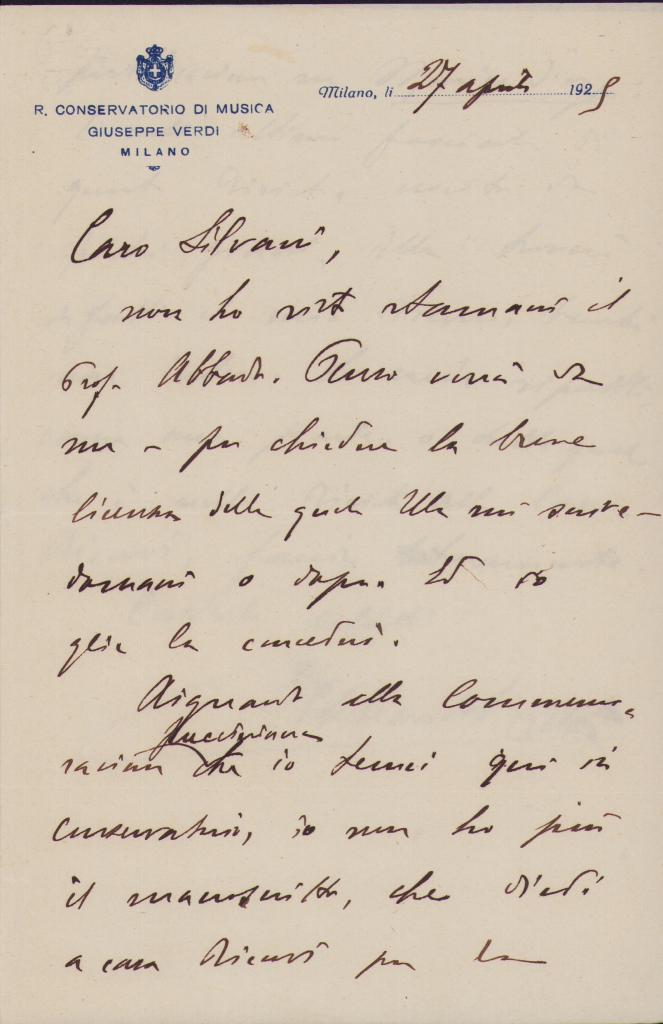 R. CONSERVATORIO DI MUSICA
GIUSEPPE VERDI
MILANO
Milano, li 27 aprile 1925
Caro Silvani,
non ho visto stamani il
Prof. Abbado. Penso verrà da
me – per chiedere la breve
licenza della quale Ella mi scrive –
domani o dopo. Ed io
glie la concederò.
Riguardo alla Commemo-
pucciniana
razione che io tenni qui in
Conservatorio, io non ho più
il manoscritto, che diedi
a casa Ricordi per la